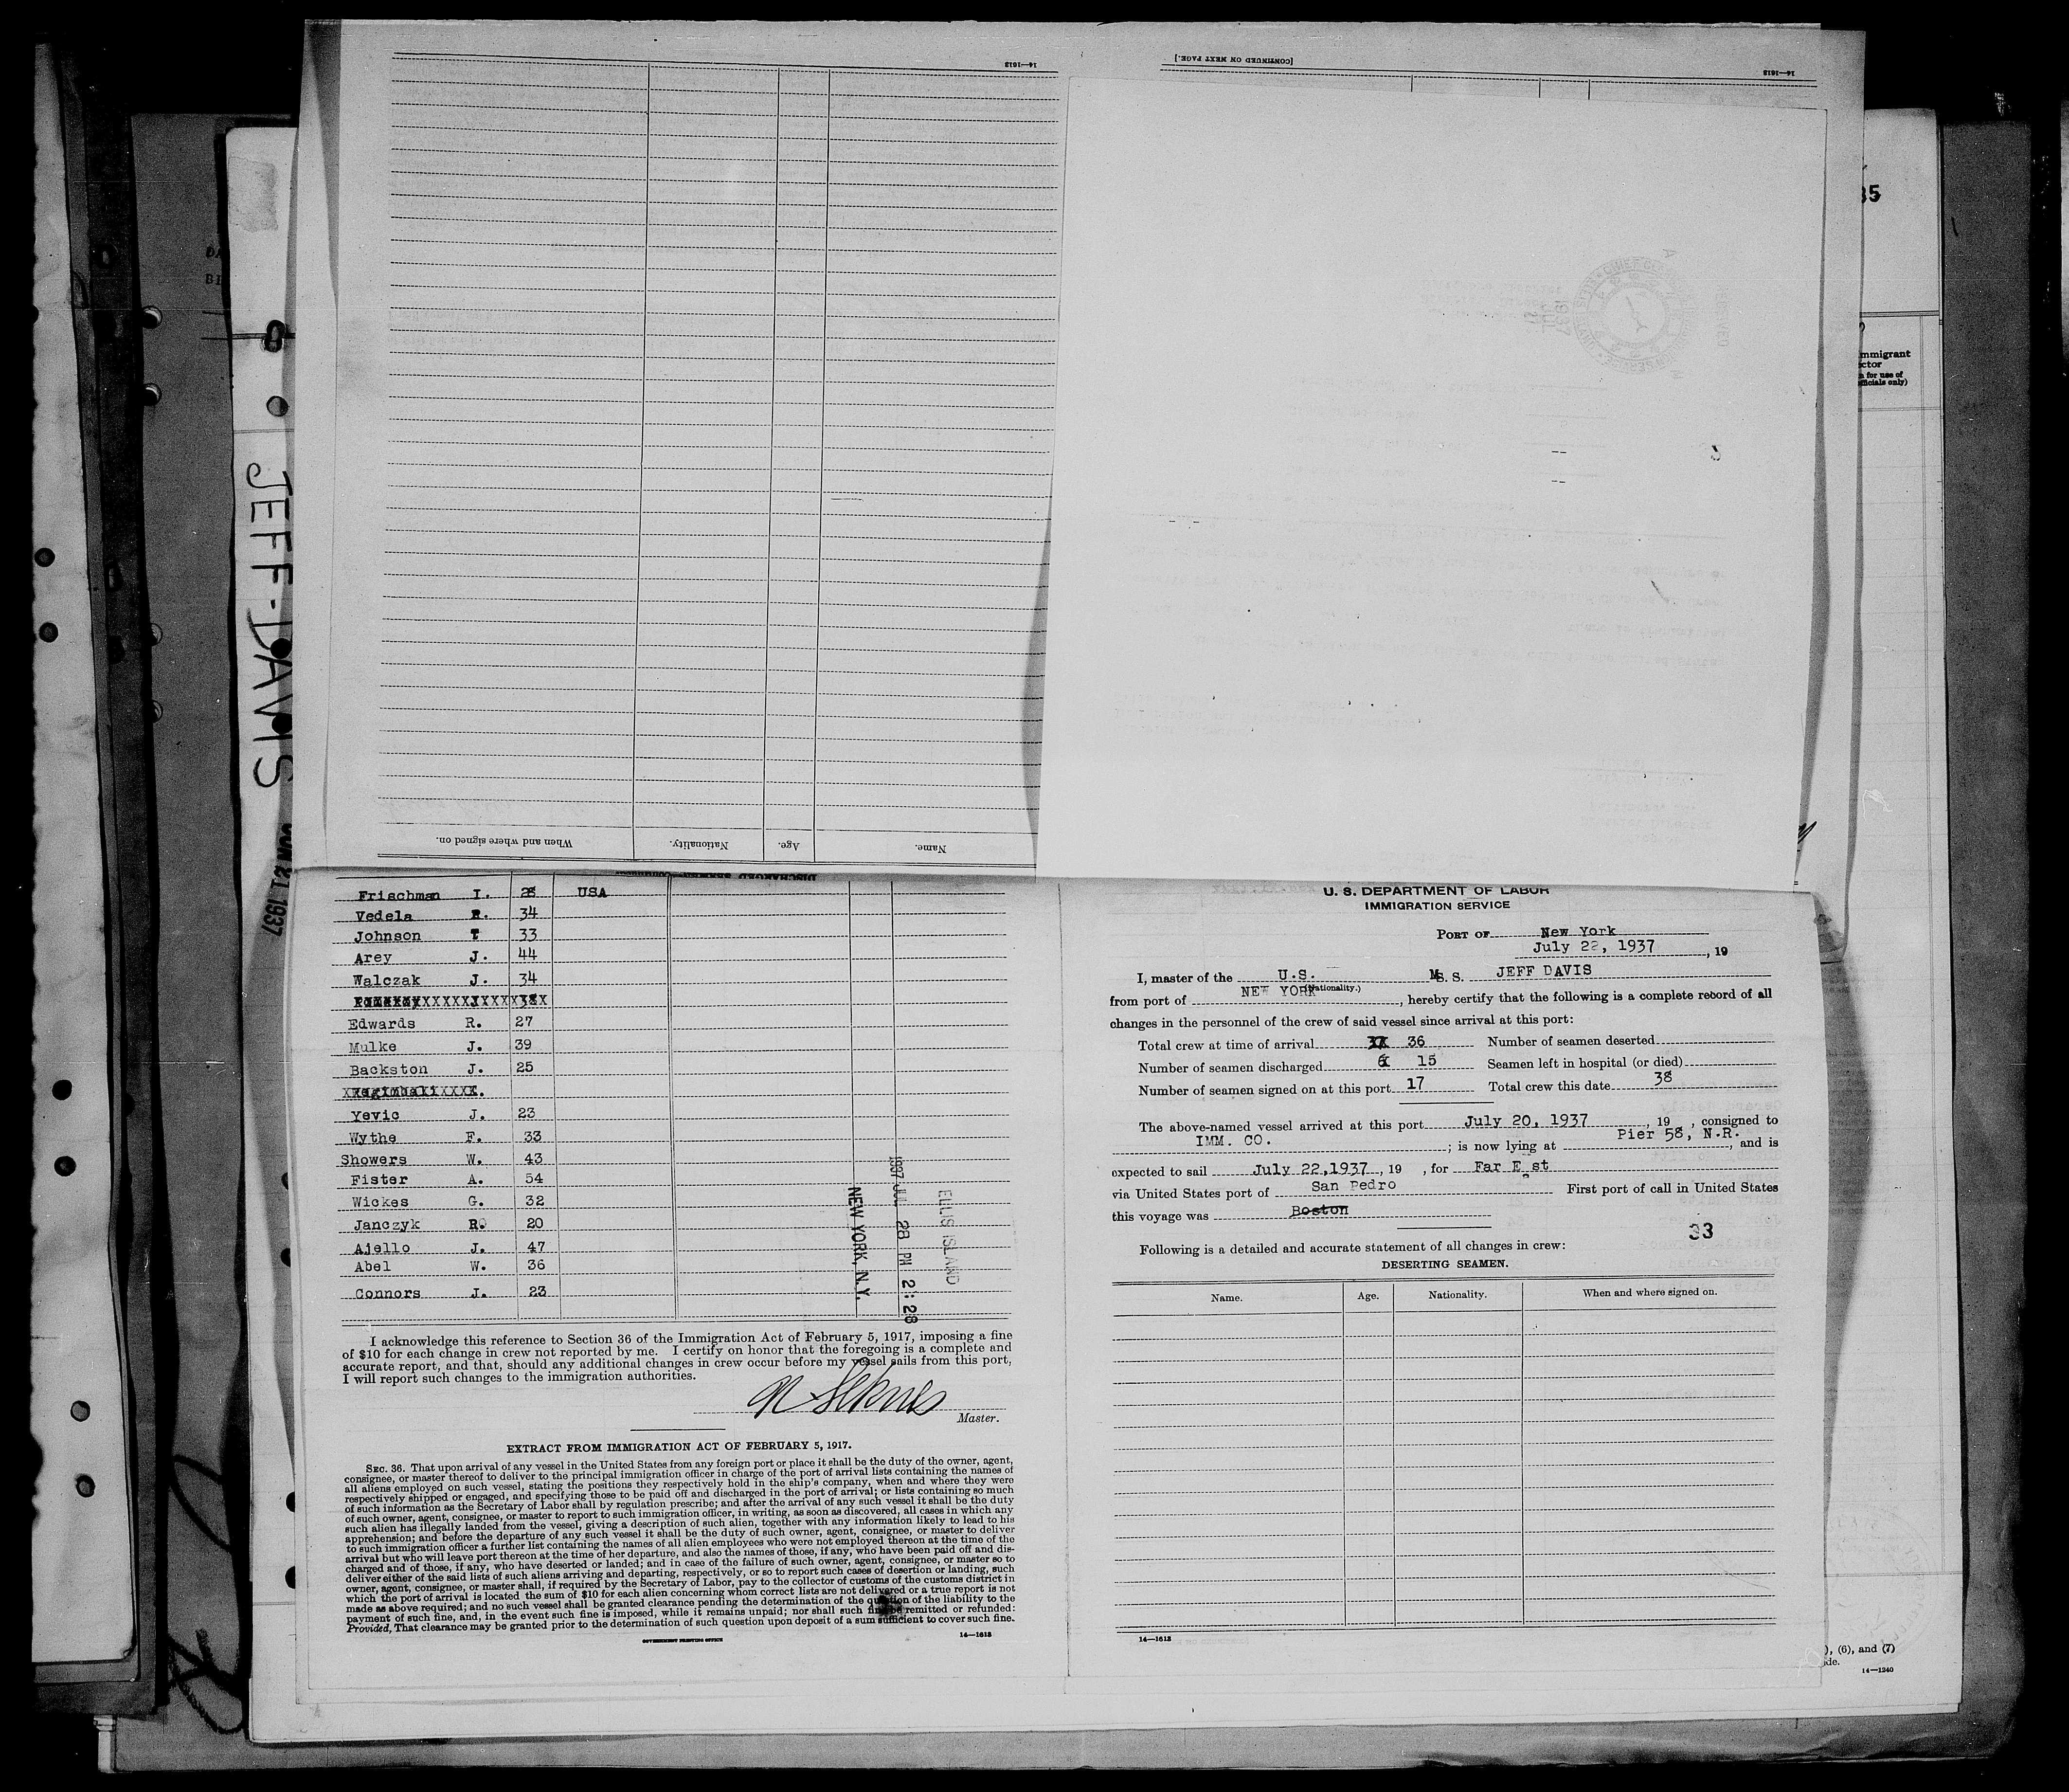 14—1613
[CONTINUED ON NEXT PAGE.]
14—1613
35
Immigrant
(fficials only)
JEFF DAVIS
21 1937
When and where signed on.
Nationality.
Age.
Name.
DISCHARGED SEAMEN
Frischman I. 28 USA
Vedela R. 34
Johnson T 33
Arey J. 44
Walczak J. 34
Edwards R. 27
Mulke J. 39
Backston J. 25
Yevic J. 23
Wythe F. 33
Showers W. 43
Fister A. 54
Wickes G. 32
Janczyk R. 20
Ajello J. 47
Abel W. 36
Connors J. 23
ELLIS ISLAND
1937 JUL 28 PM 2:28
NEW YORK, N.Y.
I acknowledge this reference to Section 36 of the Immigration Act of February 5, 1917, imposing a fine
of $10 for each change in crew not reported by me. I certify on honor that the foregoing is a complete and
accurate report, and that, should any additional changes in crew occur before my vessel sails from this port,
I will report such changes to the immigration authorities.
Master.
EXTRACT FROM IMMIGRATION ACT OF FEBRUARY 5, 1917.
SEC. 36. That upon arrival of any vessel in the United States from any foreign port or place it shall be the duty of the owner, agent,
consignee, or master thereof to deliver to the principal immigration officer in charge of the port of arrival lists containing the names of
all aliens employed on such vessel, stating the positions they respectively hold in the ship's company, when and where they were
respectively shipped or engaged, and specifying those to be paid off and discharged in the port of arrival; or lists containing so much
of such information as the Secretary of Labor shall by regulation prescribe; and after the arrival of any such vessel it shall be the duty
of such owner, agent, consignee, or master to report to such immigration officer, in writing, as soon as discovered, all cases in which any
such alien has illegally landed from the vessel, giving a description of such alien, together with any information likely to lead to his
apprehension; and before the departure of any such vessel it shall be the duty of such owner, agent, consignee, or master to deliver
to such immigration officer a further list containing the names of all alien employees who were not employed thereon at the time of the
arrival but who will leave port thereon at the time of her departure, and also the names of those, if any, who have been paid off and dis-
charged and of those, if any, who have deserted or landed; and in case of the failure of such owner, agent, consignee, or master so to
deliver either of the said lists of such aliens arriving and departing, respectively, or so to report such cases of desertion or landing, such
owner, agent, consignee, or master shall, if required by the Secretary of Labor, pay to the collector of customs of the customs district in
which the port of arrival is located the sum of $10 for each alien concerning whom correct lists are not delivered or a true report is not
made as above required; and no such vessel shall be granted clearance pending the determination of the question of the liability to the
payment of such fine, and, in the event such fine is imposed, while it remains unpaid; nor shall such fine be remitted or refunded:
Provided, That clearance may be granted prior to the determination of such question upon deposit of a sum sufficient to cover such fine.
GOVERNMENT PRINTING OFFICE
14—1613
U. S. DEPARTMENT OF LABOR
IMMIGRATION SERVICE
PORT OF New York
July 22, 1937, 19
I, master of the U.S. M.S. S. JEFF DAVIS
(Nationality.)
from port of NEW YORK, hereby certify that the following is a complete record of all
changes in the personnel of the crew of said vessel since arrival at this port:
Total crew at time of arrival 36 Number of seamen deserted
Number of seamen discharged 15 Seamen left in hospital (or died)
Number of seamen signed on at this port 17 Total crew this date 38
The above-named vessel arrived at this port July 20, 1937, 19 , consigned to
IMM. CO. ; is now lying at Pier 58, N.R. , and is
expected to sail July 22,1937, 19 , for Far E st
via United States port of San Pedro First port of call in United States
this voyage was Boston
33
Following is a detailed and accurate statement of all changes in crew:
DESERTING SEAMEN.
Name. Age. Nationality. When and where signed on.
14—1613
), (6), and (7)
14—1240